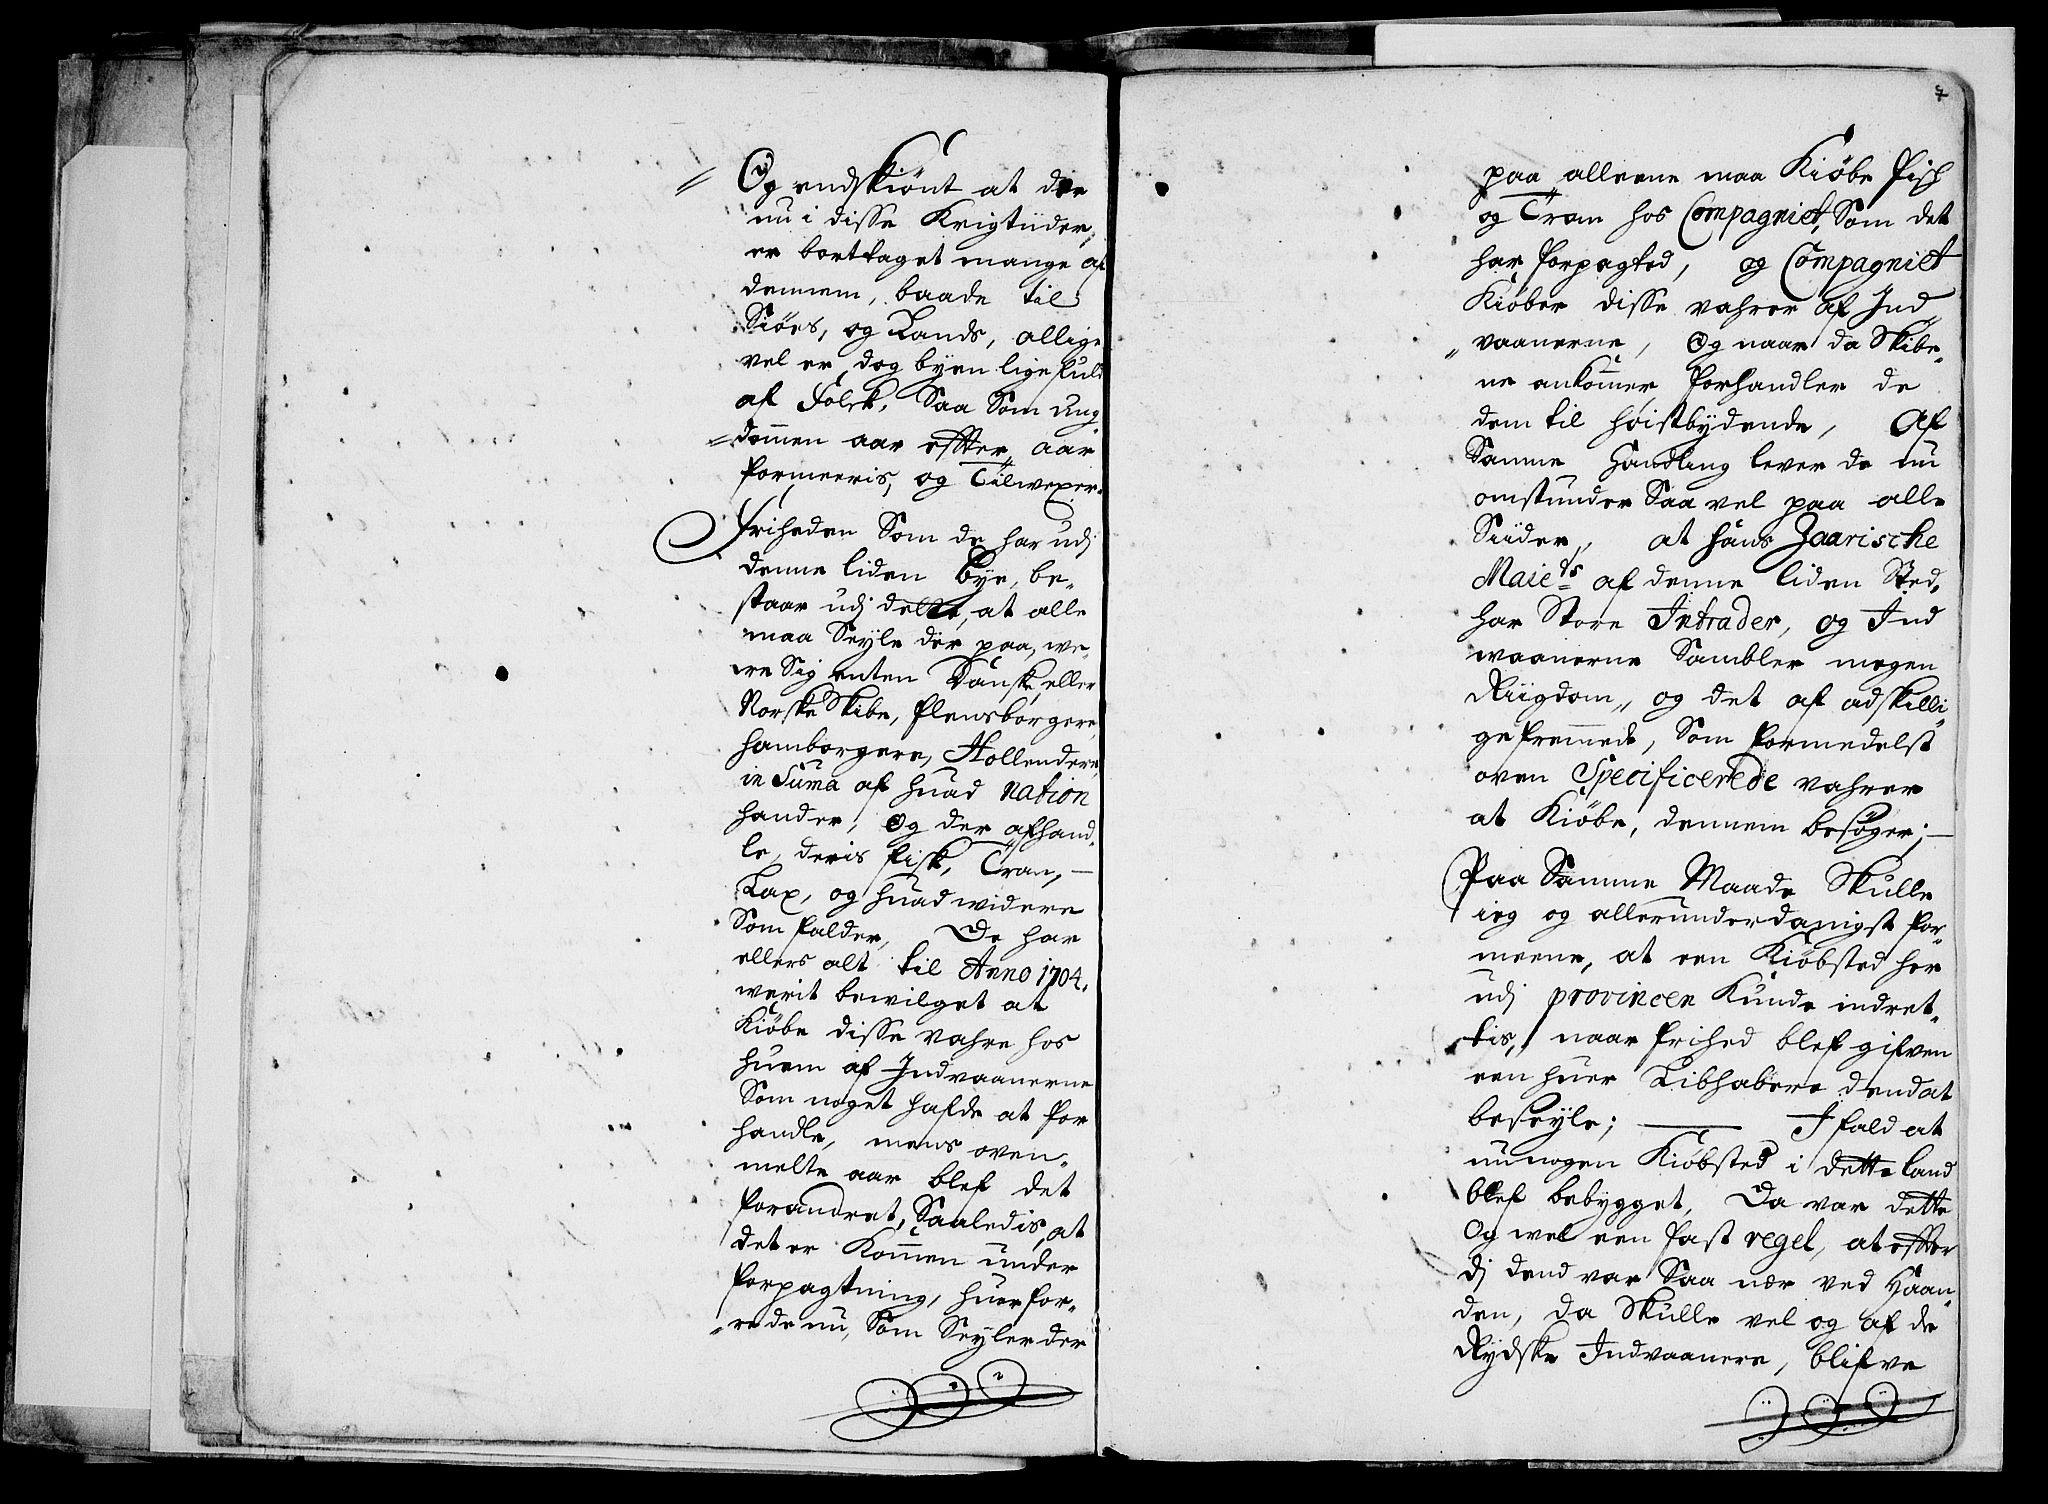 Og endskiönt at der
nu i disse Krigtiider,
er borttaget mange af
dennem, baade til
Siöes, og Lands, allige
vel er dog byen lige fuld
af Folck, Saa Som ung
dommen aar effter aar
formeeris, og Tilwexer.
Friheden Som de har udj
denne liden Bÿe, be-
staar udj dette, at alle
maa Seyle der paa, we-
re Sig enten Danske eller
Norske Skibe, flensborgere,
hamborgere, Hollendere,
in Suma af huad nation
hand er, Og der afhand-
le, deris fisk, Tran, —
Lax, og huad widere
Som falder, De har
ellers alt til Anno 1704.
werit bewilget at
Kiöbe disse vahre hos
huem af Indvaanerne
Som noget hafde at for
handle, mens oven-
melte aar blef det
forandret, Saaledis, at
det er Kommen under
forpagtning, huorfor-
re de nu, Som Seyler der
7
paa alleene maa Kiöbe fisk
og Tran hos Compagniet, Som det
har forpagted, og Compagniet
Kiöber disse vahrer af Ind
vaanerne, Og naar da Skibe-
ne ankommer, forhandler de
dem til höistbydende, Af
Samme Handling lever de nu
omstunder Saa vel paa alle
Siider, at hans Zaarische
Maiets af denne liden Sted,
har Store Intrader, og Ind
waanerne Sambler megen
Riigdom, og det af adskilli-
ge fremmede, Som formedelst
oven Specificerede vahrer
at Kiöbe, dennem besöger; —
Paa Samme Maade Skulle
ieg og allerunderdanigst for-
meene, at een Kiöbsted her
udj provincen Kunde indret-
tis, naar frihed blef gifven
een huer Libhabere dend at
beseyle; — Ifald at
nu nogen Kiöbsted i dette land
blef bebygget, Da var dette
Og wel een fast regel, at effter
dj dend var Saa nær ved Haan-
den, da Skulle vel og af de
Rydske Indvaanere, blifve